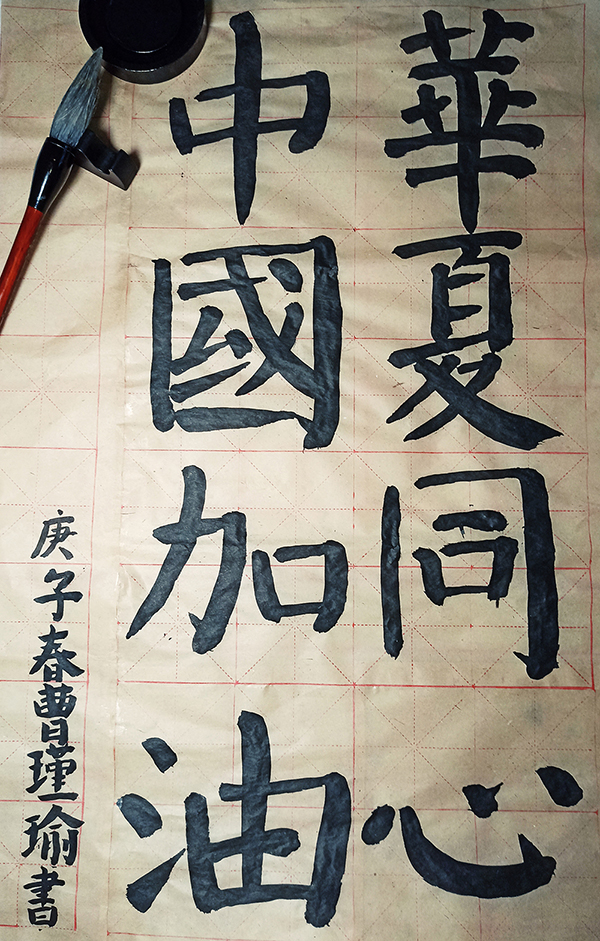 華夏同心
中國加油
庚子春曹瑾瑜書